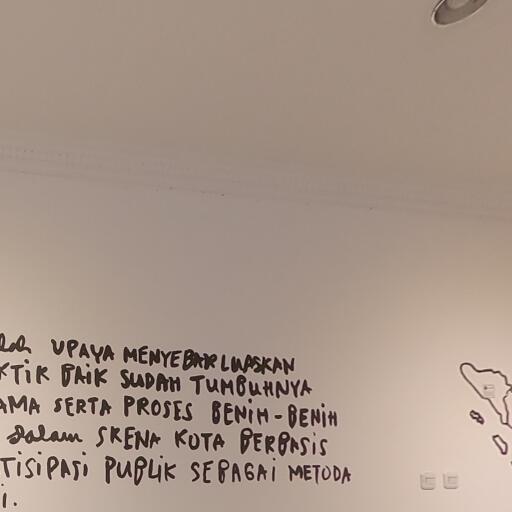 UPAYA MENYEBARLUASKAN
KTIK BAIK SUDAH TUMBUHNYA
AMA SERTA PROSES BENIH-BENIH
dalam SKENA KOTA BERBASIS
TISIPASI PUBLIK SEBAGAI METODA
I.